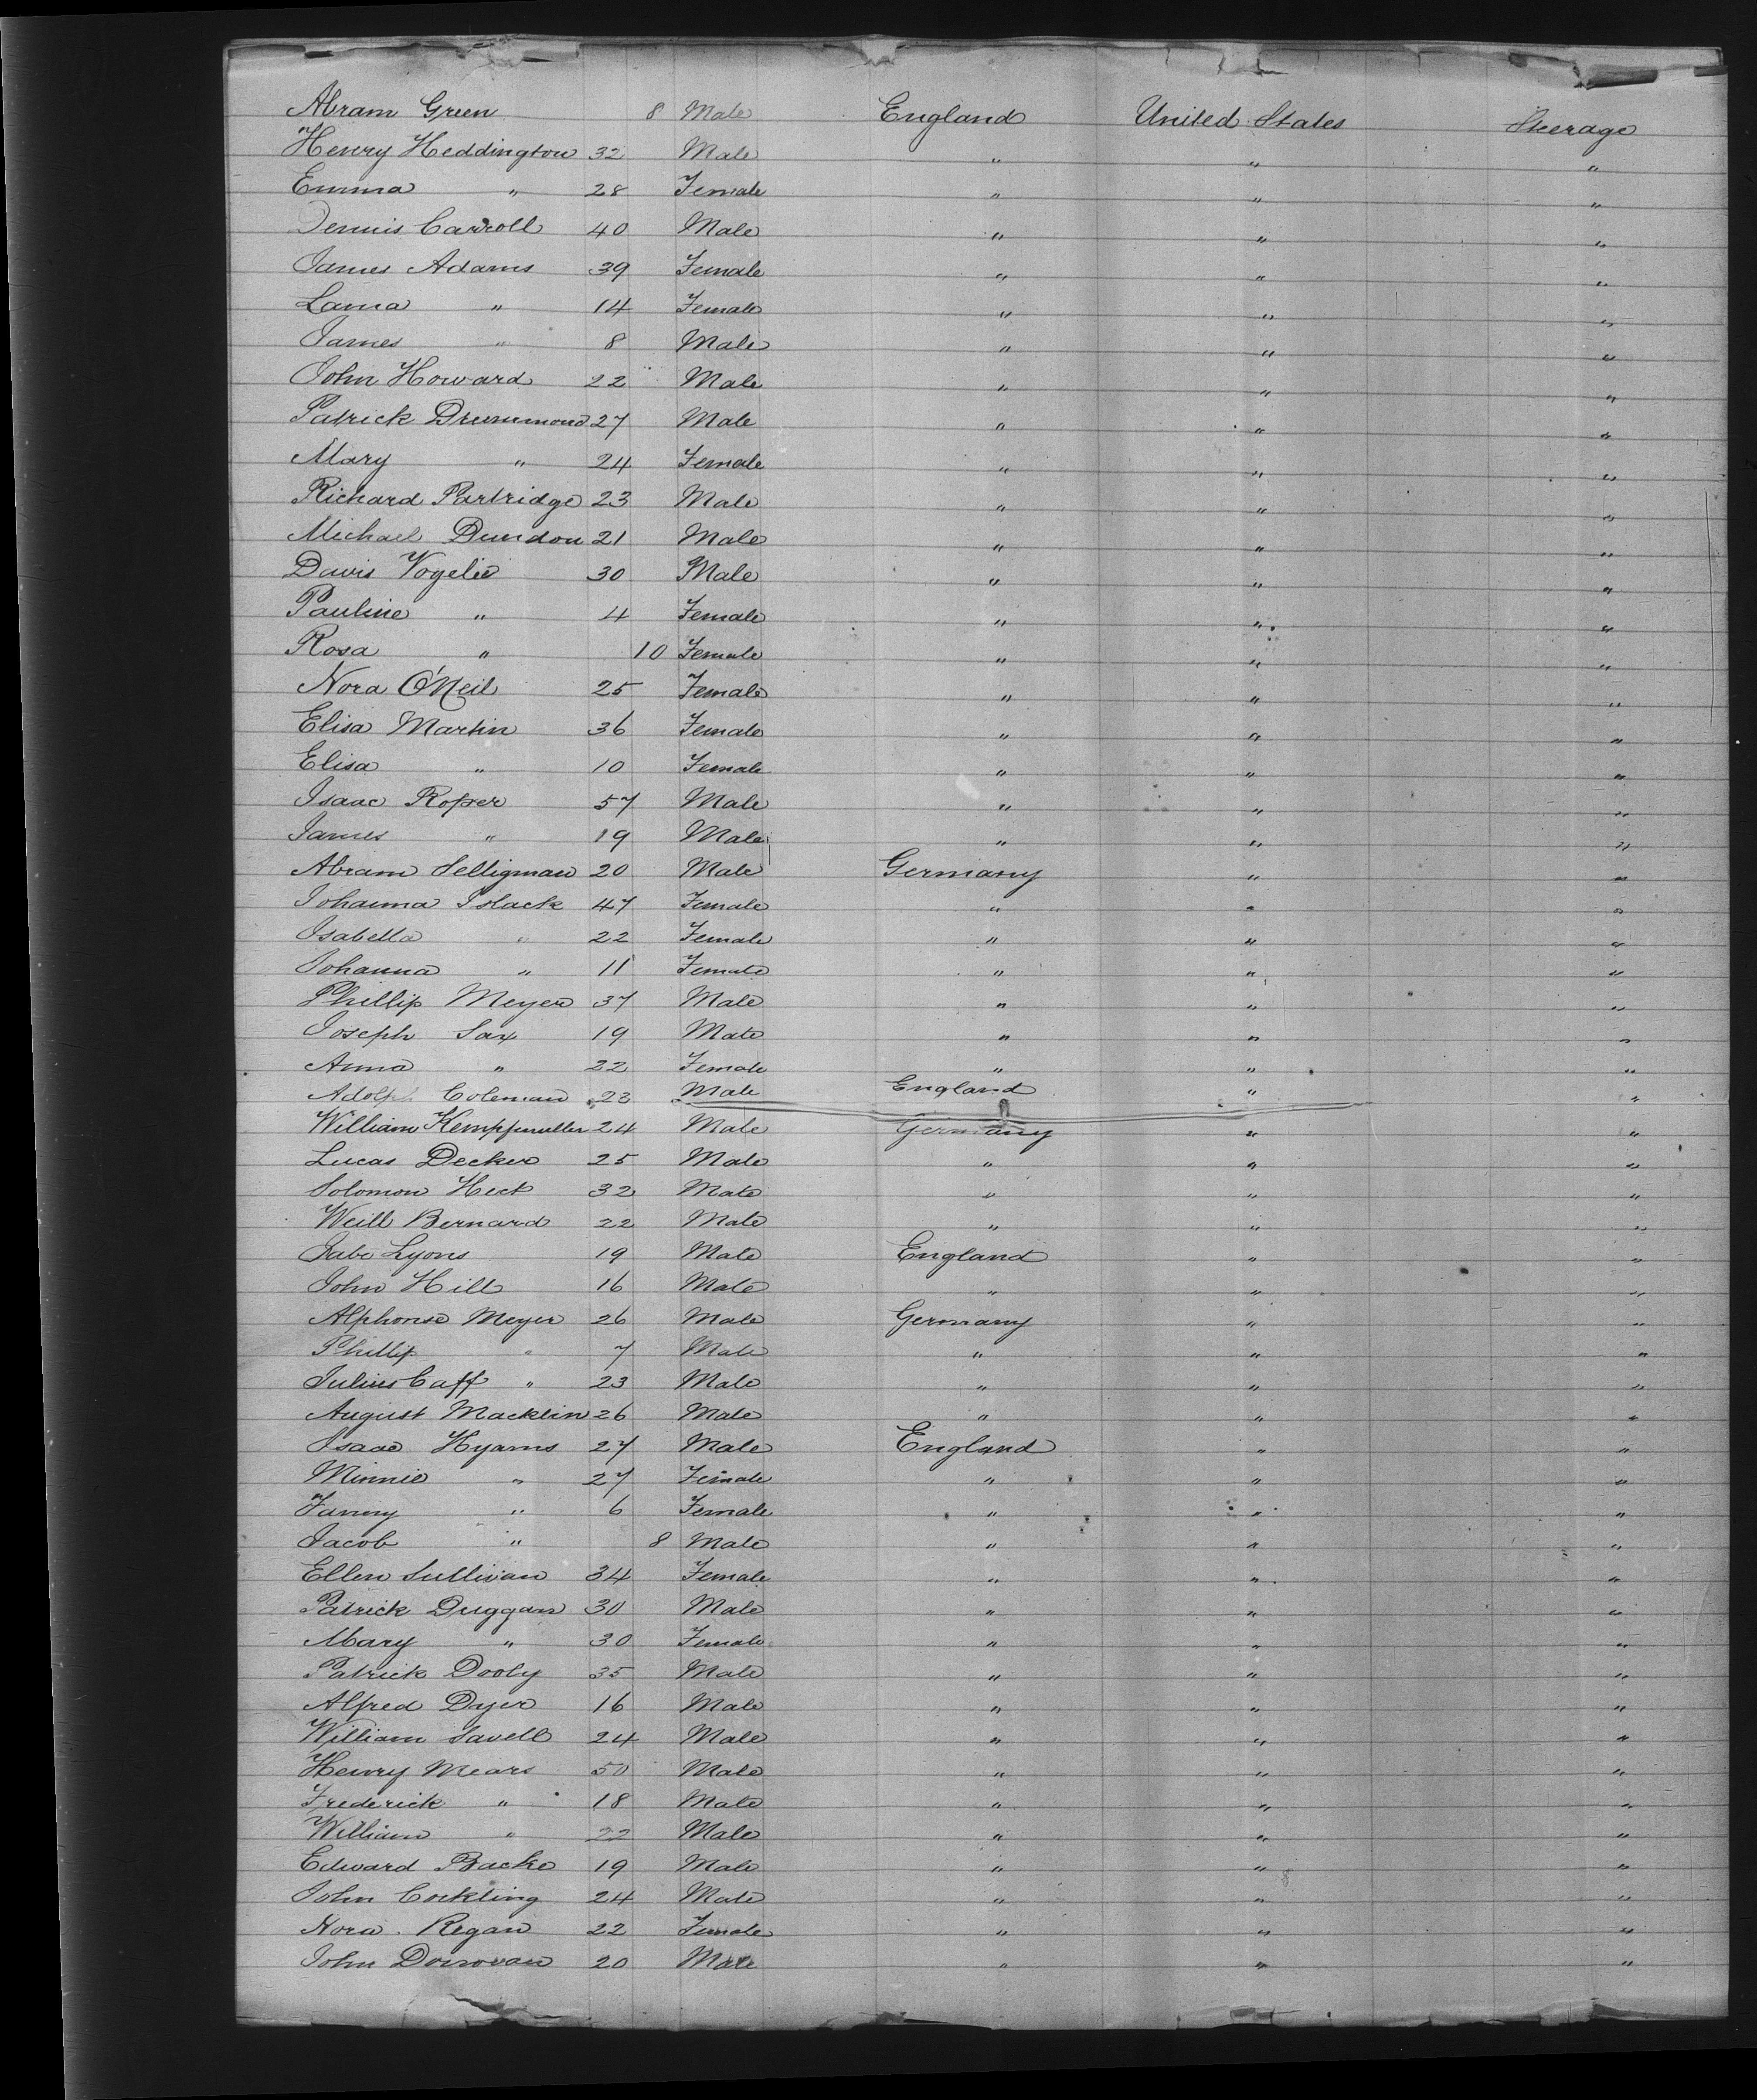 Abram Green 8 Male England United States Steerage
Henry Heddington 32 Male " " "
Emma " 28 Female " " "
Dennis Carroll 40 Male " " "
James Adams 39 Female " " "
Laura " 14 Female " " "
James " 8 Male " " "
John Howard 22 Male " " "
Patrick Drummond 27 Male " " "
Mary " 24 Female " " "
Richard Partridge 23 Male " " "
Michael Dundon 21 Male " " "
Davis 30 Male " " "
Pauline " 4 Female " " "
Rosa " 10 Female " " "
Nora O'Neil 25 Female " " "
Elisa Martin 36 Female " " "
Elisa " 10 Female " " "
Isaac Roper 57 Male " " "
James " 19 Male " " "
Abram Selligman 20 Male Germany " "
Johanna 47 Female " " "
Isabella " 22 Female " " "
Johanna " 11 Female " " "
Phillip Meyer 37 Male " " "
Joseph Sax 19 Male " " "
Anna " 22 Female " " "
Adolph Coleman 23 Male England " "
William Kempfmuller 24 Male Germany " "
Lucas Decker 25 Male " " "
Solomon Hect 32 Male " " "
Weill Bernard 22 Male " " "
Jabe Lyons 19 Male England " "
John Hill 16 Male " " "
Alphonse Meyer 26 Male Germany " "
Phillip " 7 Male " " "
Julius Caff " 23 Male " " "
August Macklin 26 Male " " "
Isaac Hyams 27 Male England " "
Minnie " 27 Female " " "
Fanny " 6 Female " " "
Jacob " 8 Male " " "
Ellen Sullivan 34 Female " " "
Patrick Duggan 30 Male " " "
Mary " 30 Female " " "
Patrick Dooly 35 Male " " "
Alfred Dyer 16 Male " " "
William Savell 24 Male " " "
Henry Mears 50 Male " " "
Frederick " 18 Male " " "
William " 22 Male " " "
Edward Backe 19 Male " " "
John Cockling 24 Male " " "
Nora Regan 22 Female " " "
John Donovan 20 Male " " "